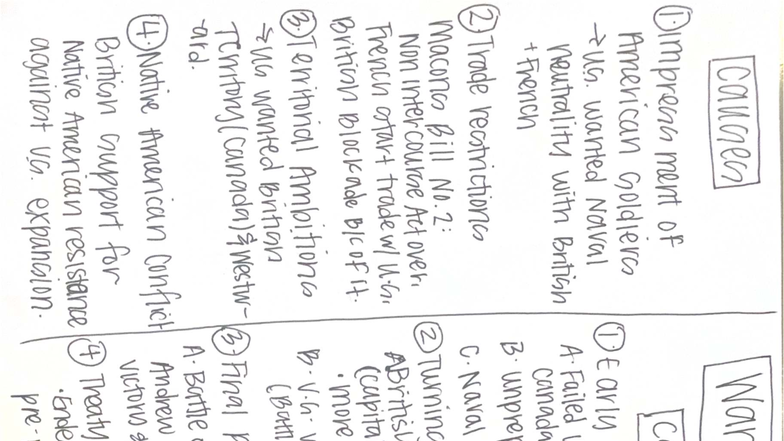 Causes
① Impressment of
American Soldiers
→ U.S. wanted Naval
neutrality with British
+ French
② Trade restrictions
Macons Bill No.2:
Non intercourse Act over,
French start trade w/ U.S.
British Blockade B/C of it.
③. Territorial Ambitions
→ U.S wanted British
Territory (Canada) & Westw-
ard.
④. Native American Conflict
British support for
Native American resistance
against U.S. expansion.
War
① Early
A. Failed
Canada
B. unpre
C. Naval
② Turning
A British
(Capita
• more
B. U.S.
(Battl
③ Final
A. Battle
Andrew
victory
④ Treaty
• Ende
pre-